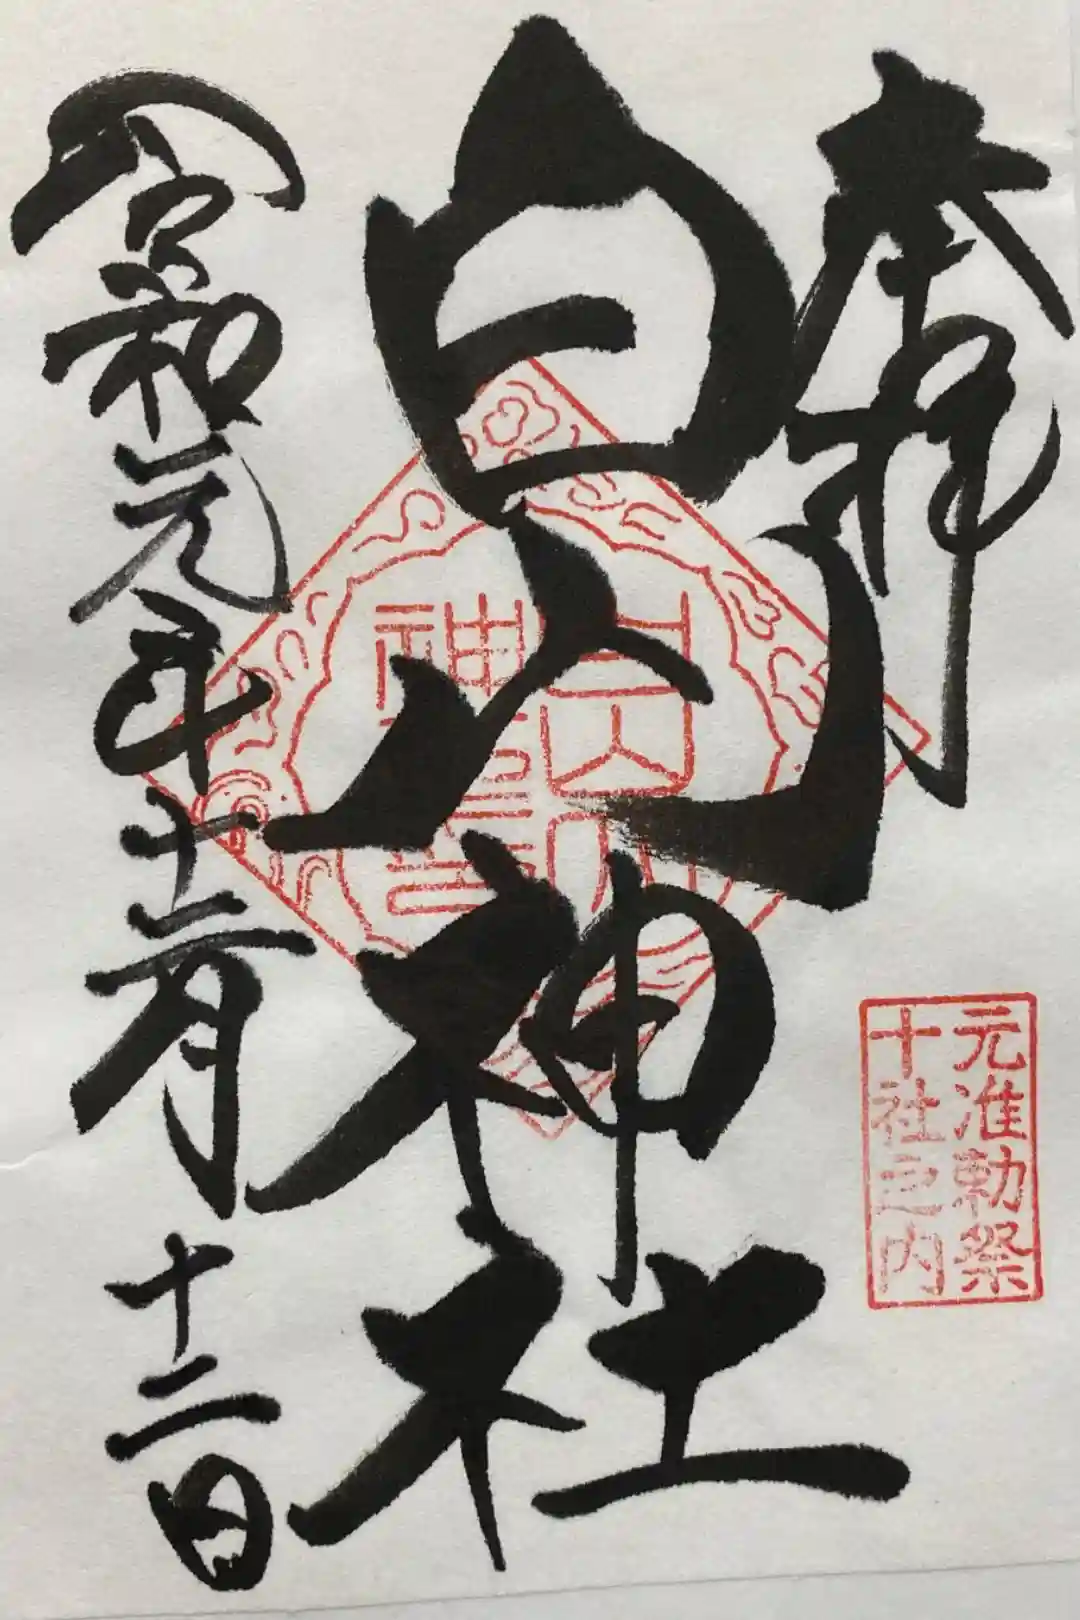 奉拝
白山神社
令和元年十二月十二日
元准勅祭
十社之内